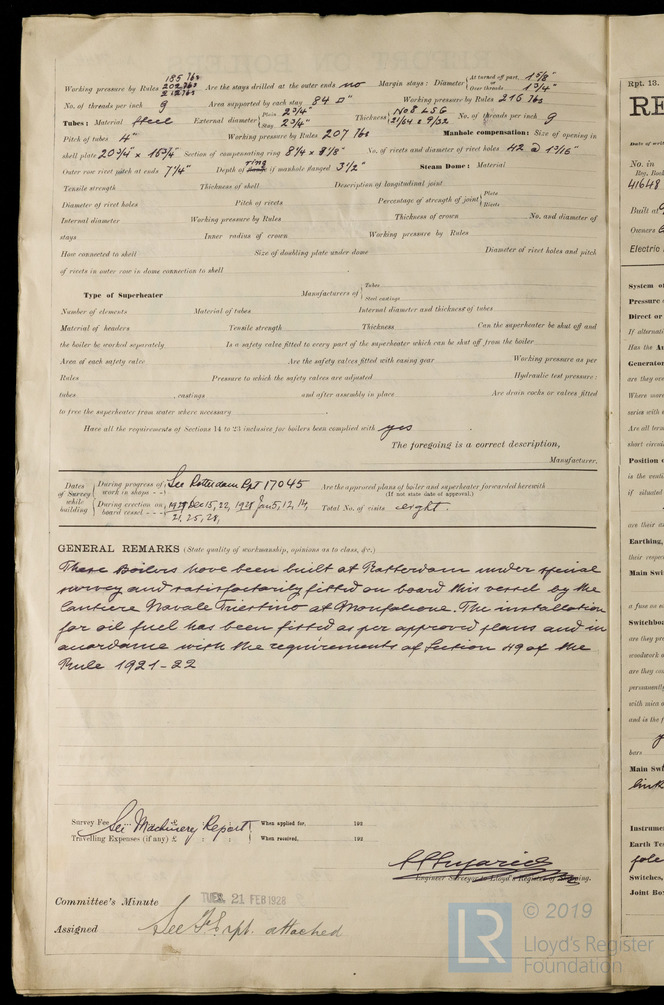 185 lbs
Working pressure by Rules 202 lbs Are the stays drilled at the outer ends no Margin stays: Diameter { At turned off part, 1 5/8" or Over threads 1 3/4"
No. of threads per inch 9 Area supported by each stay 84 □" Working pressure by Rules 216 lbs
Tubes: Material Steel External diameter { Plain 2 3/4" Stay 2 3/4" Thickness { No 8 LSG 21/64 & 9/32 No. of threads per inch 9
Pitch of tubes 4" Working pressure by Rules 207 lbs Manhole compensation: Size of opening in
shell plate 20 3/4" x 16 3/4" Section of compensating ring No. of rivets and diameter of rivet holes 42 @ 1 3/16"
Outer row rivet pitch at ends 7 1/4" Depth of ring if manhole flanged 3 1/2" Steam Dome: Material
Tensile strength Thickness of shell Description of longitudinal joint
Diameter of rivet holes Pitch of rivets Percentage of strength of joint { Plate Rivets
Internal diameter Working pressure by Rules Thickness of crown No. and diameter of
stays Inner radius of crown Working pressure by Rules
How connected to shell Size of doubling plate under dome Diameter of rivet holes and pitch
of rivets in outer row in dome connection to shell
Type of Superheater Manufacturers of { Tubes Steel castings
Number of elements Material of tubes Internal diameter and thickness of tubes
Material of headers Tensile strength Thickness Can the superheater be shut off and
the boiler be worked separately Is a safety valve fitted to every part of the superheater which can be shut off from the boiler
Area of each safety valve Are the safety valves fitted with easing gear Working pressure as per
Rules Pressure to which the safety valves are adjusted Hydraulic test pressure:
tubes , castings and after assembly in place Are drain cocks or valves fitted
to free the superheater from water where necessary
Have all the requirements of Sections 14 to 23 inclusive for boilers been complied with yes
The foregoing is a correct description,
Manufacturer.
Dates of Survey while building { During progress of work in shops - - See Rotterdam Rpt 17045 Are the approved plans of boiler and superheater forwarded herewith (If not state date of approval.)
During erection on board vessel - - - 1927 Dec 15, 22, 1928 Jan 5, 12, 14, 21, 25, 28, Total No. of visits eight
GENERAL REMARKS (State quality of workmanship, opinions as to class, &c.)
These Boilers have been built at Rotterdam under special
survey and satisfactorily fitted on board this vessel by the
Cantiere Navale Triestino at Monfalcone. The installation
for oil fuel has been fitted as per approved plans and in
accordance with the requirements of Section 49 of the
Rule 1921-22
Survey Fee ... £ : : When applied for, 192
See Machinery Report
Travelling Expenses (if any) £ : : When received, 192
Engineer Surveyor to Lloyd's Register of Shipping.
Committee's Minute TUES. 21 FEB 1928
Assigned See rpt. attached
© 2019
LR Lloyd's Register
Foundation
Rpt. 13.
RE
Date of writ
No. in
Reg. Book
41648
Built at
Owners
Electric
System of
Pressure
Direct or
If alternati
Has the Au
Generator
are they on
Where more
series with
Are all term
short circui
Position o
is the venti
if situated
are their a
Earthing,
their respec
Main Swi
a fuse on e
Switchboa
are they pro
woodwork a
are they con
permanently
with mica o
and is the f
bars
Main Swi
link
Instrume
Earth Te
pole
Switches,
Joint Box